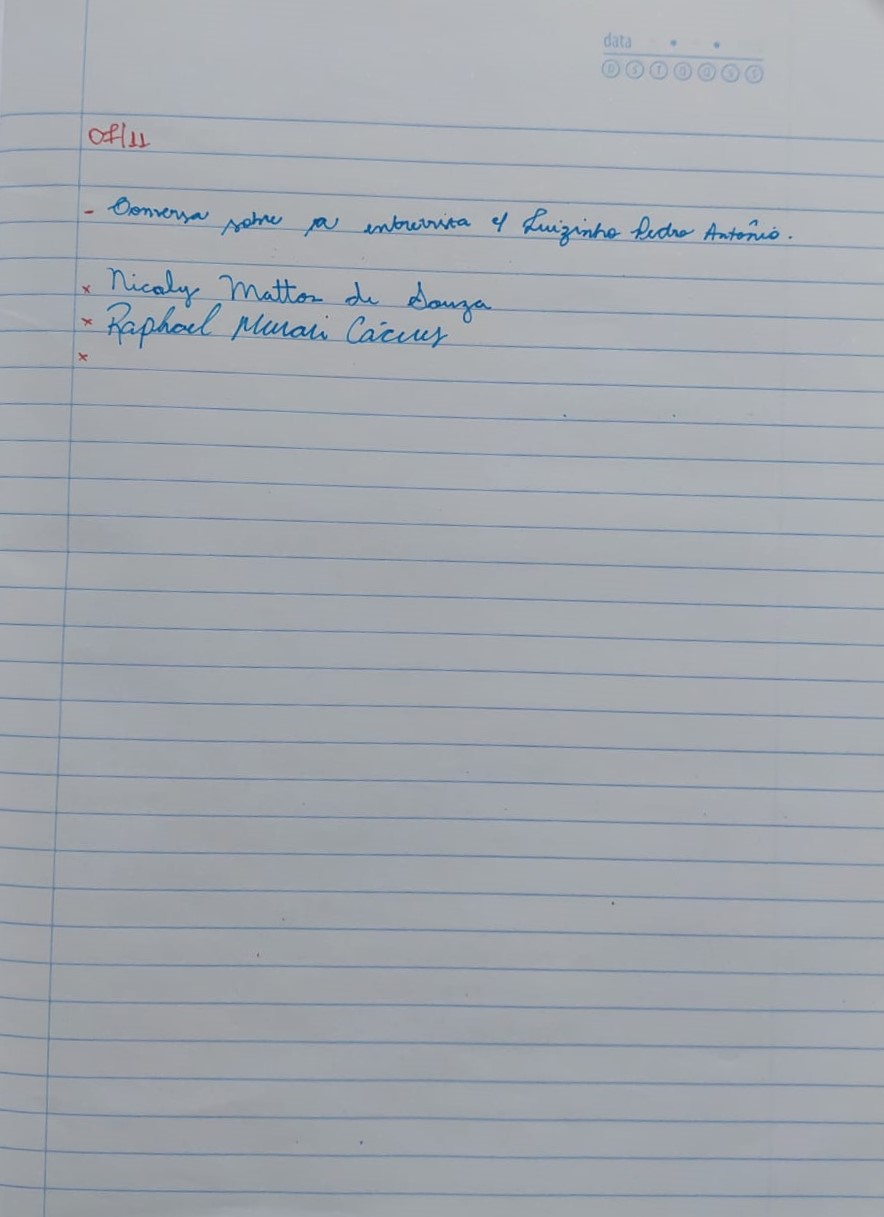 data
D S T Q Q S S
07/11
- Conversa sobre a entrevista c/ Luizinho Pedro Antônio.
x Nicoly Mattos de Souza
x Raphael Murari Cáceres
x